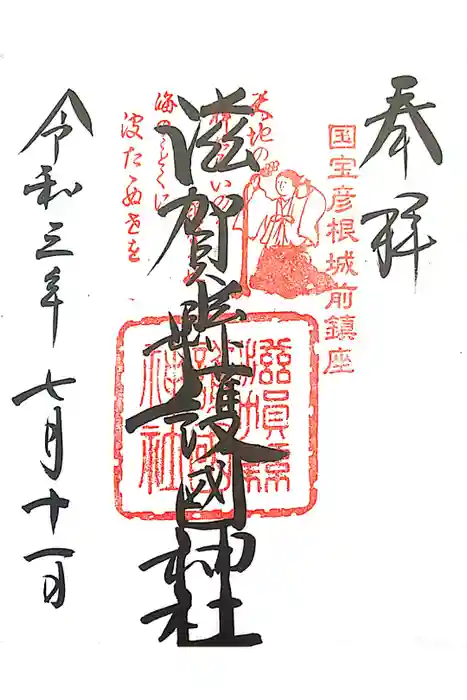 奉拝
国宝彦根城前鎮座
天地の
海のごとくに
波たゝぬ世を
滋賀縣護國神社
滋賀縣
神社
令和三年七月十一日